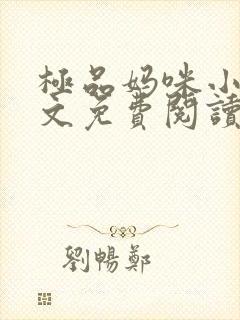 極品妈咪小
文免費閱讀
劉暢鄭